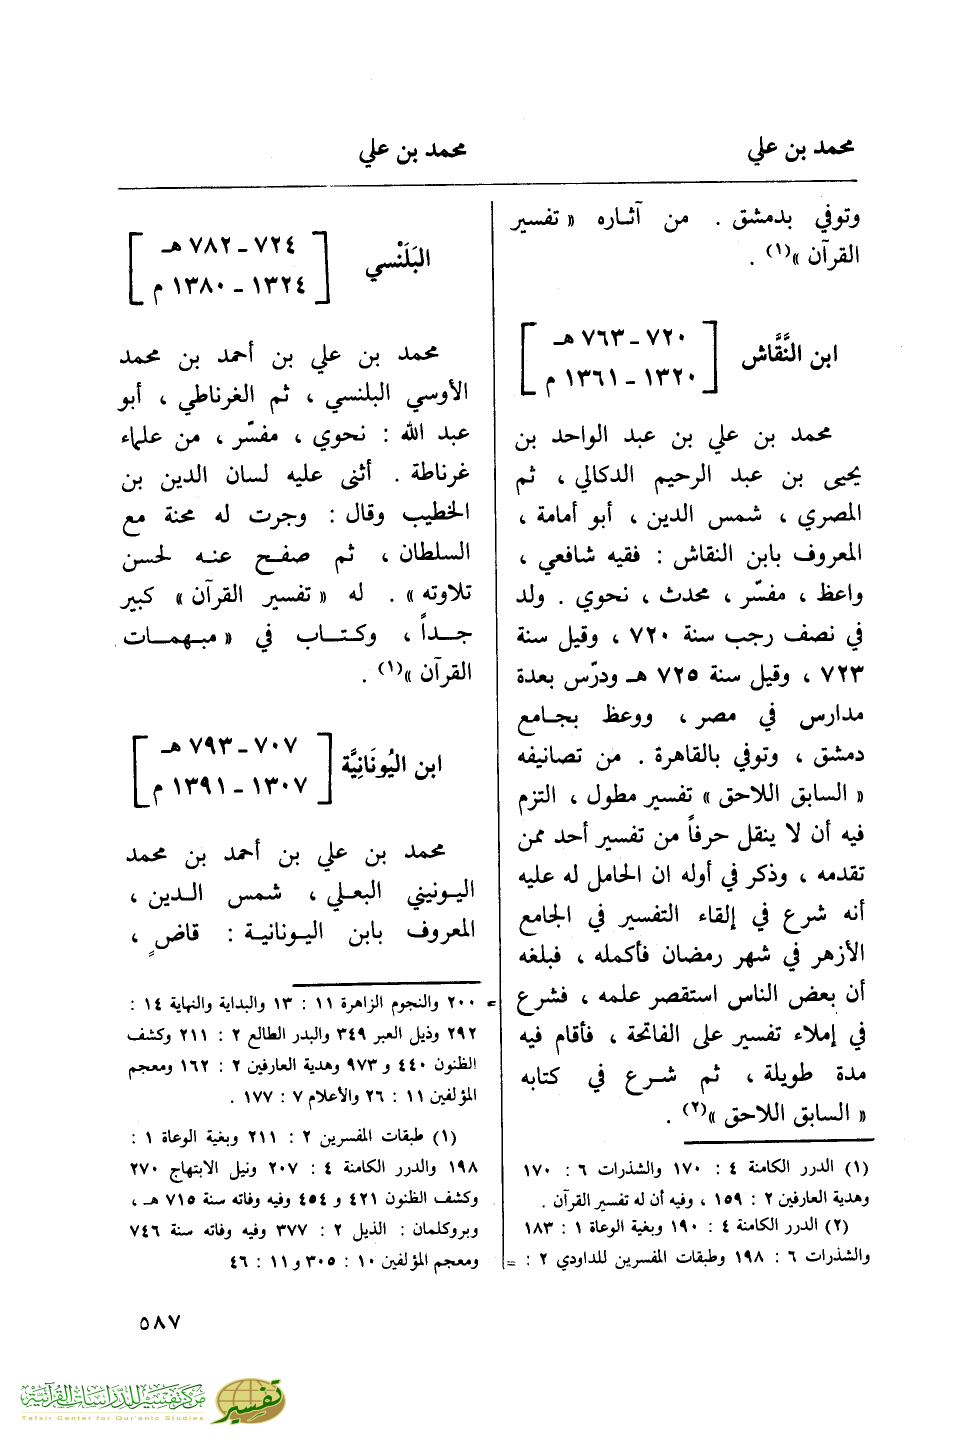 محمد بن علي
محمد بن علي
وتوفي بدمشق . من آثاره « تفسير
القرآن »(١) .
ابن النَّقَّاش
[ ٧٢٠ - ٧٦٣ هـ
١٣٢٠ - ١٣٦١ م ]
محمد بن علي بن عبد الواحد بن
يحيى بن عبد الرحيم الدكالي ، ثم
المصري ، شمس الدين ، أبو أمامة ،
المعروف بابن النقاش : فقيه شافعي ،
واعظ ، مفسّر ، محدث ، نحوي . ولد
في نصف رجب سنة ٧٢٠ ، وقيل سنة
٧٢٣ ، وقيل سنة ٧٢٥ هـ ودرّس بعدة
مدارس في مصر ، ووعظ بجامع
دمشق ، وتوفي بالقاهرة . من تصانيفه
« السابق اللاحق » تفسير مطول ، التزم
فيه أن لا ينقل حرفاً من تفسير أحد ممن
تقدمه ، وذكر في أوله ان الحامل له عليه
أنه شرع في إلقاء التفسير في الجامع
الأزهر في شهر رمضان فأكمله ، فبلغه
أن بعض الناس استقصر علمه ، فشرع
في إملاء تفسير على الفاتحة ، فأقام فيه
مدة طويلة ، ثم شرع في كتابه
« السابق اللاحق »(٢) .
(١) الدرر الكامنة ٤ : ١٧٠ والشذرات ٦ : ١٧٠
وهدية العارفين ٢ : ١٥٩ ، وفيه أن له تفسير القرآن .
(٢) الدرر الكامنة ٤ : ١٩٠ وبغية الوعاة ١ : ١٨٣
والشذرات ٦ : ١٩٨ وطبقات المفسرين للداودي ٢ : =
البَلَنْسي
[ ٧٢٤ - ٧٨٢ هـ
١٣٢٤ - ١٣٨٠ م ]
محمد بن علي بن أحمد بن محمد
الأوسي البلنسي ، ثم الغرناطي ، أبو
عبد الله : نحوي ، مفسّر ، من علماء
غرناطة . أثنى عليه لسان الدين بن
الخطيب وقال : وجرت له محنة مع
السلطان ، ثم صفح عنه لحسن
تلاوته » . له « تفسير القرآن » كبير
جداً ، وكتاب في « مبهمات
القرآن »(١) .
ابن اليُونَانِيَّة
[ ٧٠٧ - ٧٩٣ هـ
١٣٠٧ - ١٣٩١ م ]
محمد بن علي بن أحمد بن محمد
اليونيني البعلي ، شمس الدين ،
المعروف بابن اليونانية : قاضٍ ،
= ٢٠٠ والنجوم الزاهرة ١١ : ١٣ والبداية والنهاية ١٤ :
٢٩٢ وذيل العبر ٣٤٩ والبدر الطالع ٢ : ٢١١ وكشف
الظنون ٤٤٠ و ٩٧٣ وهدية العارفين ٢ : ١٦٢ ومعجم
المؤلفين ١١ : ٢٦ والأعلام ٧ : ١٧٧ .
(١) طبقات المفسرين ٢ : ٢١١ وبغية الوعاة ١ :
١٩٨ والدرر الكامنة ٤ : ٢٠٧ ونيل الابتهاج ٢٧٠
وكشف الظنون ٤٢١ و ٤٥٤ وفيه وفاته سنة ٧١٥ هـ ،
وبروكلمان : الذيل ٢ : ٣٧٧ وفيه وفاته سنة ٧٤٦
ومعجم المؤلفين ١٠ : ٣٠٥ و ١١ : ٤٦
٥٨٧
مركز تفسير للدراسات القرآنية
Tafsir Center for Qur'anic Studies
تفسير